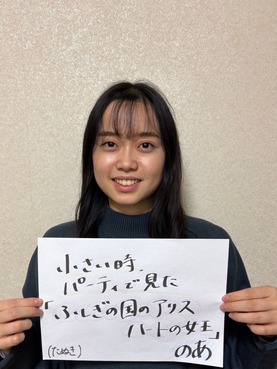 小さい時、
パーティで見た
「ふしぎの国のアリス
ハートの女王」
(たぬき)
のあ